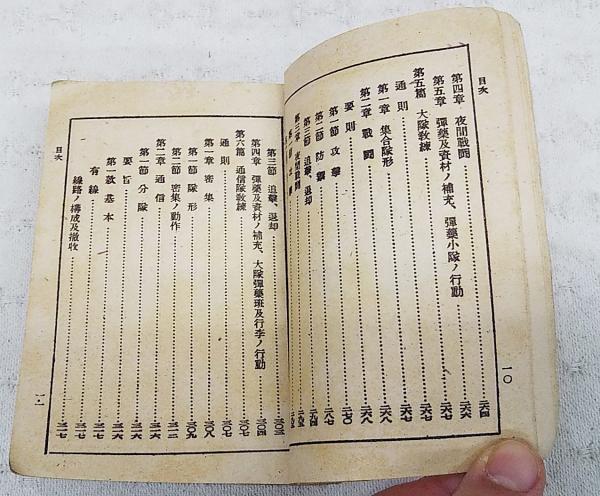 目次
第四章 夜間戰鬪 二六四
第五章 彈藥及資材ノ補充、彈藥小隊ノ行動 二六六
第五篇 大隊教練 二六七
通則 二六七
第一章 集合隊形 二六八
第二章 戰鬪 二六八
要則
第一節 攻擊
第二節 防禦
第三節 追擊、退却
第三章 夜間戰鬪
第三節 追擊、退却 三〇三
第四章 彈藥及資材ノ補充、大隊彈藥班及行李ノ行動 三〇四
第六篇 通信隊教練 三〇七
通則 三〇七
第一章 密集 三〇八
第一節 隊形 三〇九
第二節 密集ノ動作 三一二
第二章 通信 三一六
第一節 分隊 三一六
要旨 三一六
第一款 基本 三一七
有線 三一七
線路ノ構成及撤收 三一七
目次
一〇
一一